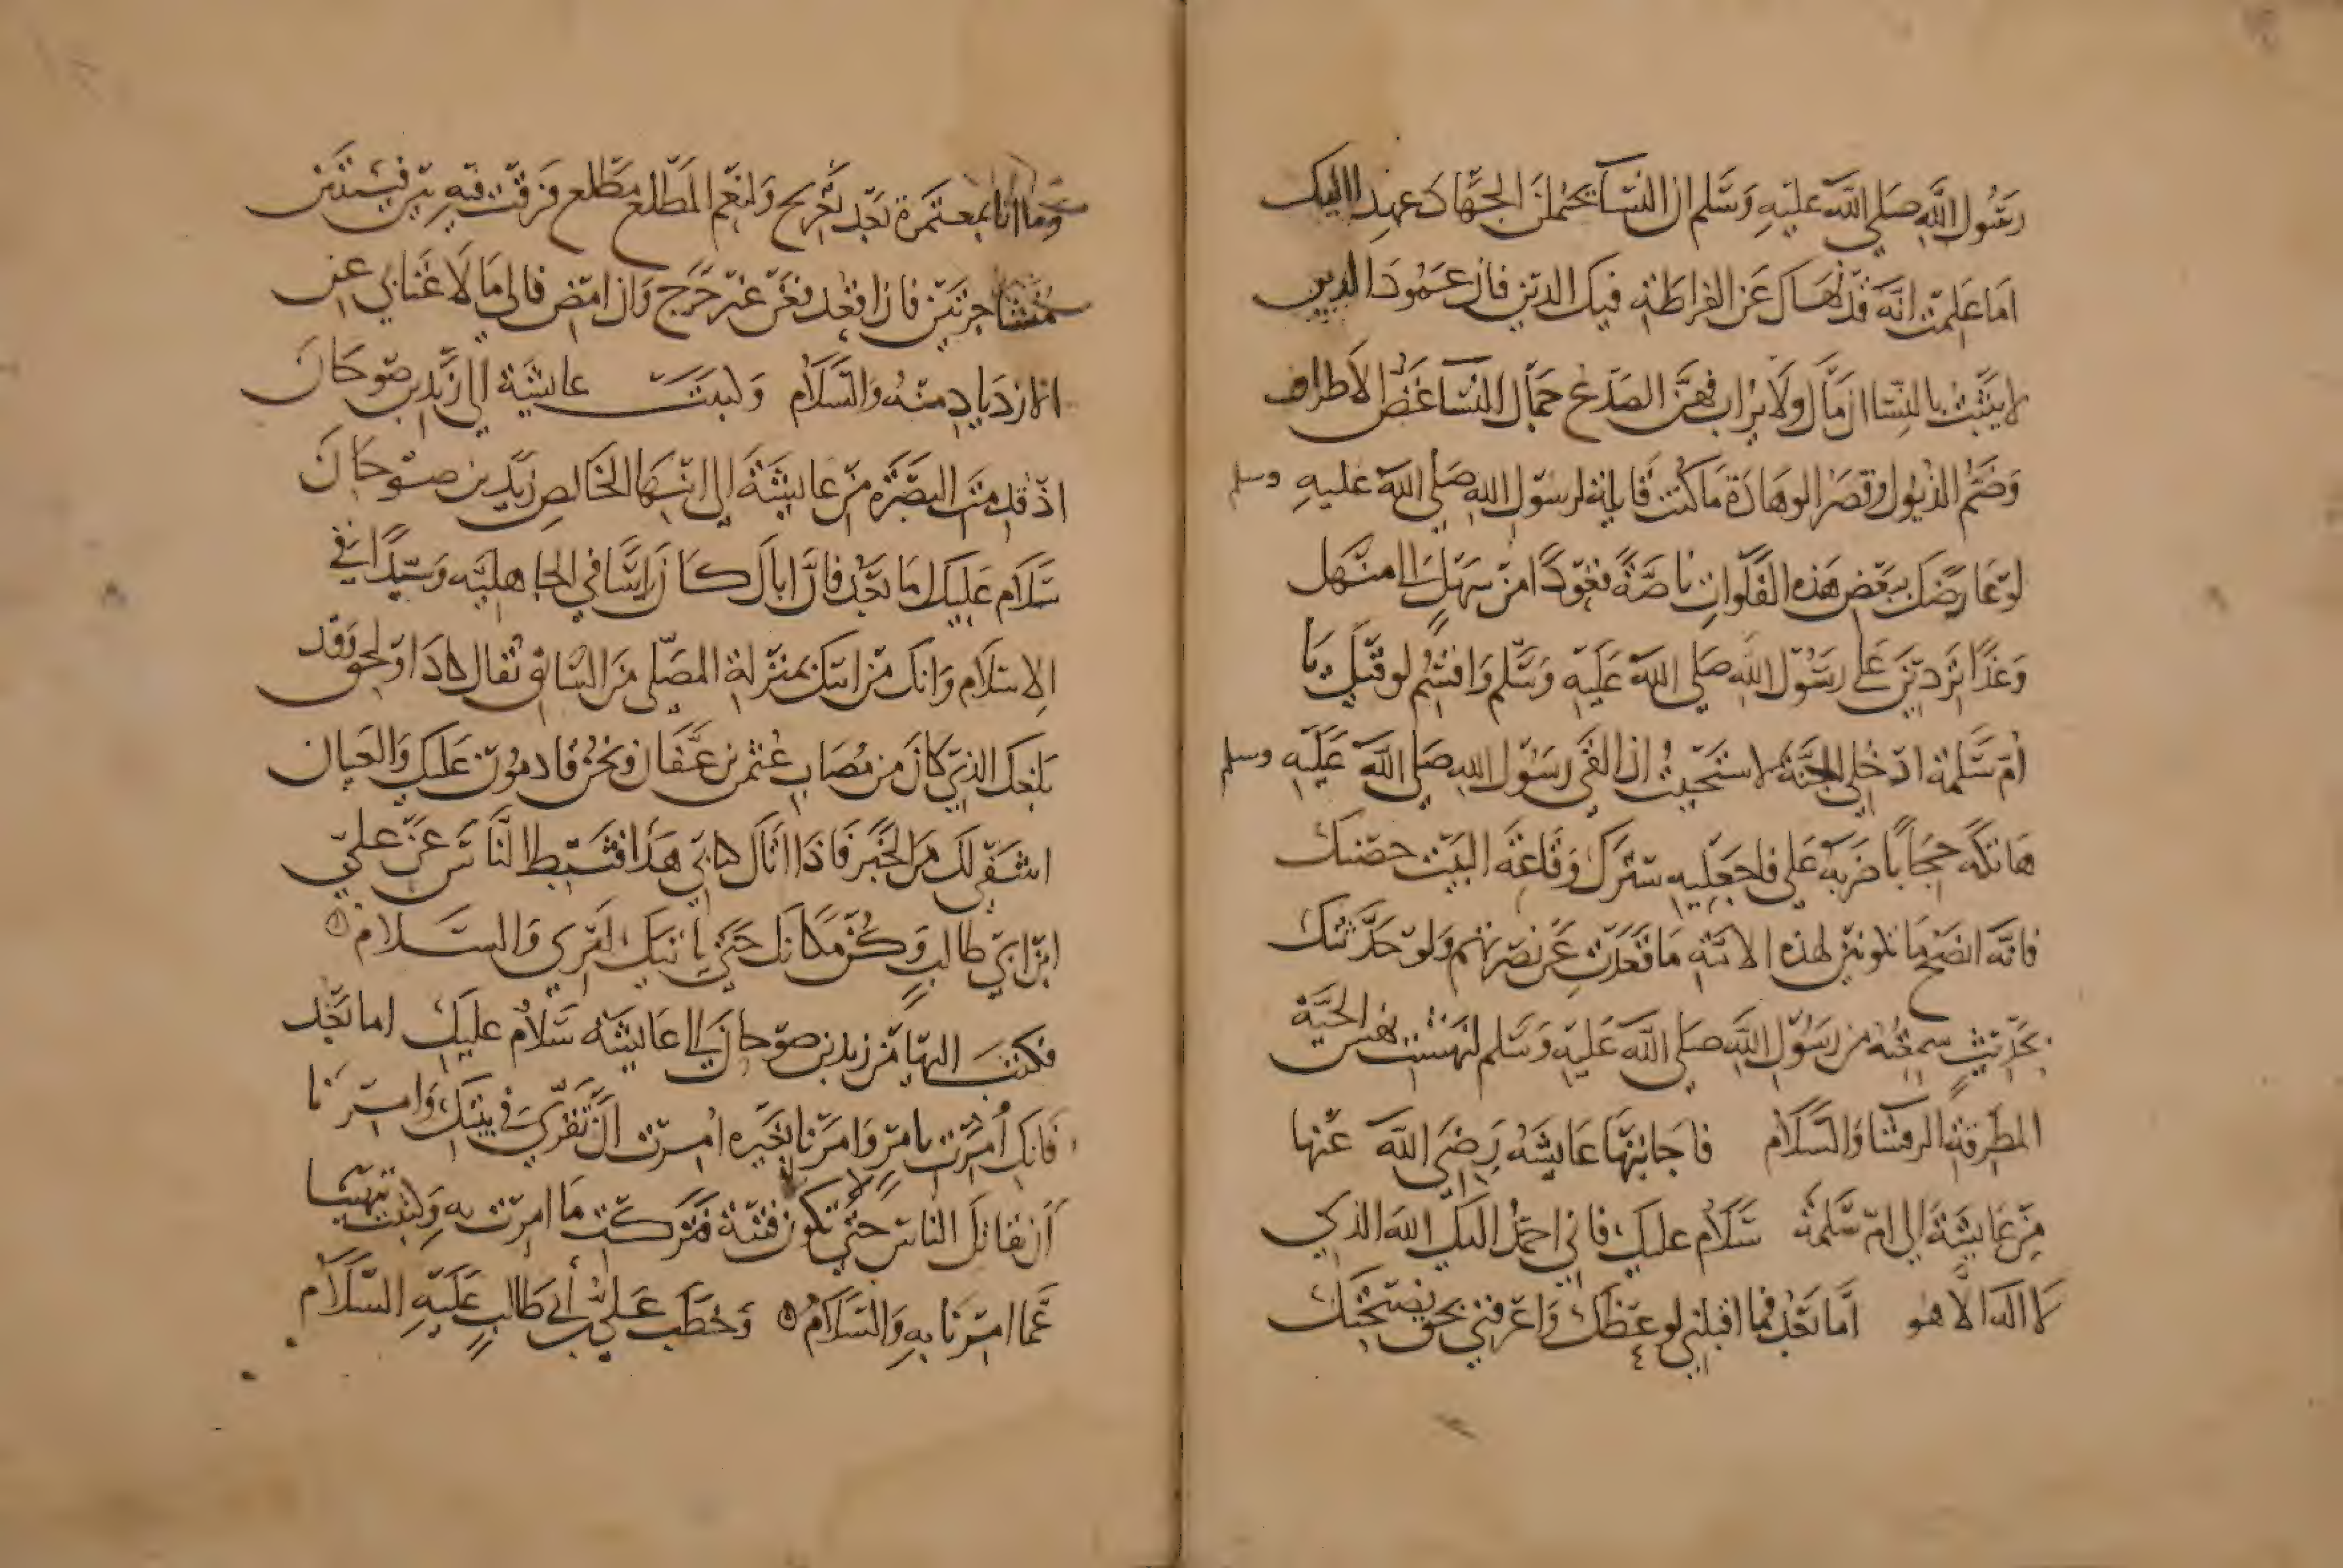 رسول الله صلى الله عليه وسلم ان النسا يحتملن الجهاد عهد اليك
اما علمت انه قد نهاك عن الفراطة فيك الدين فان عمود الدين
لا يثبت بالنسا ان مال ولا يراب بهن ان صدع حمال النسا غض الاطراف
وضم الذيول وقصر الوهادة ما كنت قايلة لرسول الله صلى الله عليه وسلم
لو عارضك ببعض هذه الفلوات ناصة قعودا من سهل الى منهل
وغدا تردين على رسول الله صلى الله عليه وسلم واقسم لو قيل يا
ام سلمة ادخلي الجنة لاستحييت ان القى رسول الله صلى الله عليه وسلم
هاتكة حجابا ضربه علي فاجعليه سترك وقاعة البيت حصنك
فانه انصح ما تكونين لهذه الامة ما قعدت عن نصرتهم ولو حدثتك
بحديث سمعته من رسول الله صلى الله عليه وسلم لنهشت نهس الحية
المطرقة الرقشا والسلام فاجابتها عايشه رضي الله عنها
من عايشة الى ام سلمة سلام عليك فاني احمد اليك الله الذي
لا اله الا هو اما بعد فما اقبلني لوعظك واعرفني بحق نصيحتك
وما انا بمعتمرة بعد تعريج ولنعم المطلع مطلع فرقت فيه بين فيتين
متشاجرتين فان اقعد فعن غير حرج وان امض فالى ما لا غنا بي عن
الازدياد منه والسلام وكتبت عايشة الى زيد بن صوحان
اذ قدمت البصرة من عايشة الى ابنها الخالص زيد بن صوحان
سلام عليك اما بعد فان اباك كان راسا في الجاهلية وسيدا في
الاسلام وانك من ابيك بمنزلة المصلي من السابق يقال كاد او لحق وقد
بلغك الذي كان من مصاب عثمن بن عفان ونحن قادمون عليك والعيان
اشفى لك من الخبر فاذا اتاك كتابي هذا فثبط الناس عن علي
ابن ابي طالب وكن مكانك حتى ياتيك امري والسلام
فكتب اليها من زيد بن صوحان الى عايشة سلام عليك اما بعد
فانك امرت بامر وامرنا بغيره امرت ان تقري في بيتك وامرنا
ان نقاتل الناس حتى لا تكون فتنة فتركت ما امرت به وكتبت تنهينا
عما امرنا به والسلام وخطب علي بن ابي طالب عليه السلام